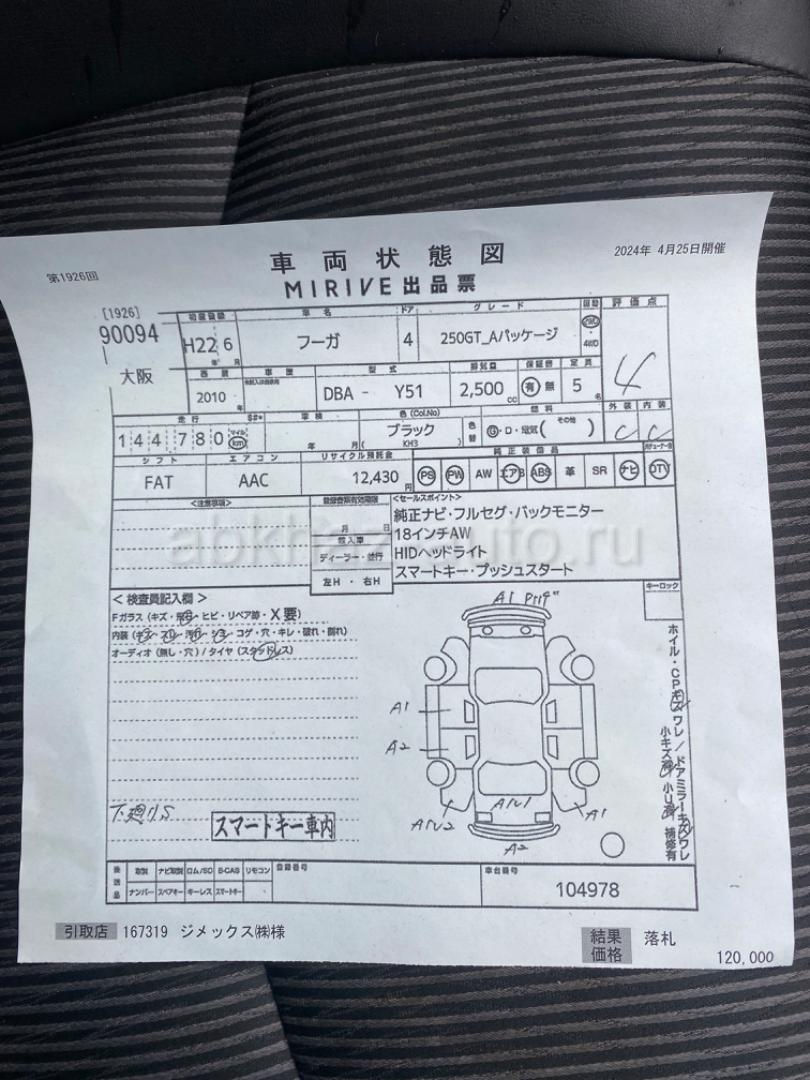 第1926回
車両状態図
2024年 4月25日開催
MIRIVE出品票
[1926]
90094
大阪
初度登録 車名 ドア グレード 評価点
H22 6 フーガ 4 250GT_Aパッケージ 4WD 4
年 月
西暦 車歴 型式 排気量 保証書 定員
2010 年 DBA - Y51 2,500 CC 有 無 5 名
走行 $#* 車検 色 (Col.No) 色替 燃料 外装 内装
144780 マイル km 年 月 ブラック ( KH3 ) G・D・電気( その他 ) C C
シフト エアコン リサイクル預託金 純正装備品
FAT AAC 12,430 円 PS PW AW エアB ABS 革 SR ナビ DTV
<注意事項> 登録書類有効期限 <セールスポイント>
月 日
純正ナビ・フルセグ・バックモニター
輸入車
18インチAW
ディーラー・並行
HIDヘッドライト
左H ・ 右H
スマートキー・プッシュスタート
キーロック
abkhazauto.ru
<検査員記入欄>
Fガラス (キズ・飛石・ヒビ・リペア跡・X要)
内装 (キズ・スレ・汚れ・シミ・コゲ・穴・キレ・破れ・割れ)
オーディオ (無し・穴) / タイヤ (スタッドレス)
A1
A1
A2
A1
A2
ホイル・CPキズワレ/ドアミラーキズワレ
小キズ 小U 補修有
下廻りS
スマートキー車内
後送品 取説 ナビ取説 ロム/SD B-CAS リモコン 登録番号 車台番号
ナンバー スペアキー キーレス スマートキー 104978
引取店 167319 ジメックス㈱様 結果 落札
価格 120,000